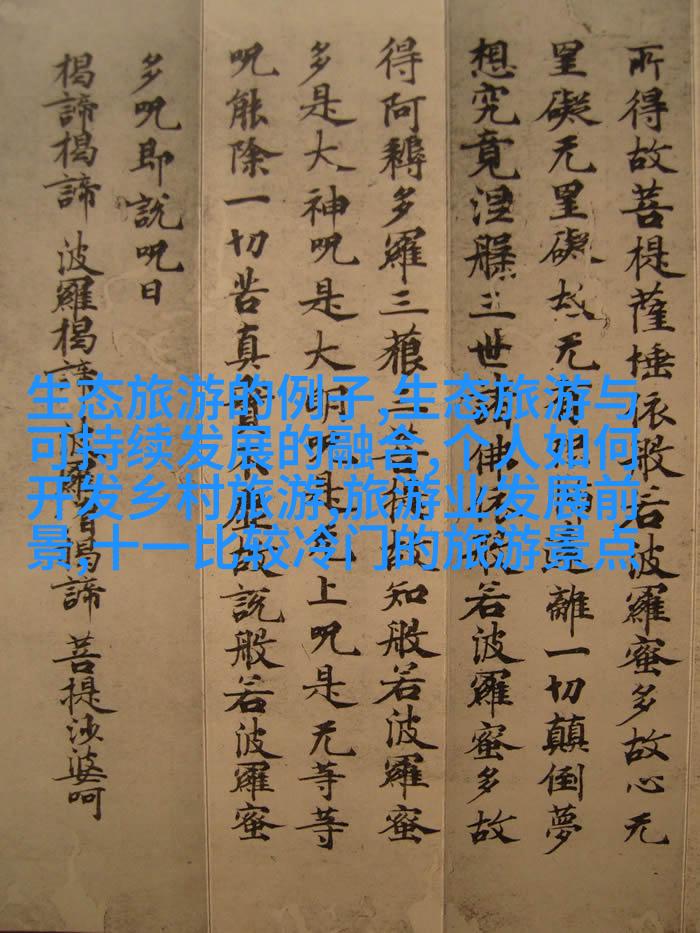 所得故菩提薩埵依般若波羅蜜多故心无
罣礙无罣礙故无有恐怖遠離一切顛倒夢
想究竟涅槃三世諸佛依般若波羅蜜多故
得阿耨多羅三藐三菩提故知般若波羅蜜
多是大神呪是大明呪是无上呪是无等等
呪能除一切苦真實不虛故說般若波羅蜜
多呪即說呪曰
揭諦揭諦 波羅揭諦 波羅僧揭諦 菩提沙婆呵
生态旅游的例子,生态旅游与
可持续发展的融合,个人如何
开发乡村旅游,旅游业发展前
景,十一比较冷门的旅游景点